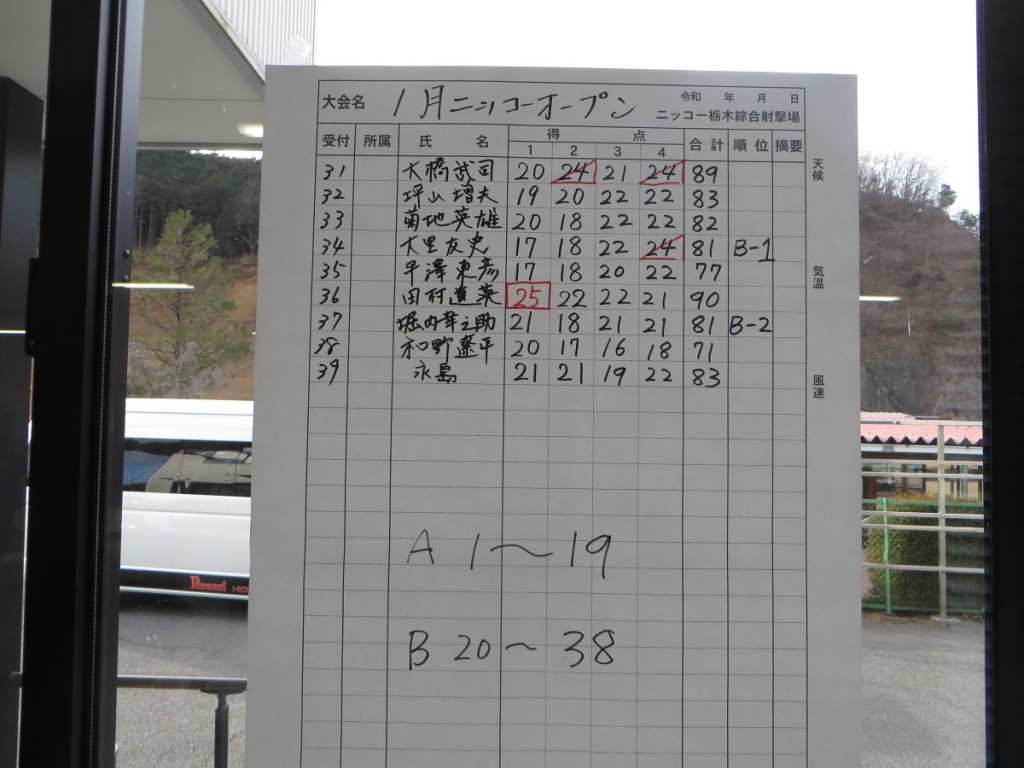 大会名 1月ニッコーオープン 令和 年 月 日
ニッコー栃木綜合射撃場
受付 所属 氏 名 得 点 合計 順位 摘要
1 2 3 4
31 大橋武司 20 24 21 24 89
32 坪山増夫 19 20 22 22 83
33 菊地英雄 20 18 22 22 82
34 大里友史 17 18 22 24 81 B-1
35 平澤東彦 17 18 20 22 77
36 田村直葉 25 22 22 21 90
37 堀内幸之助 21 18 21 21 81 B-2
38 和野遼平 20 17 16 18 71
39 永島 21 21 19 22 83
天候
気温
風速
A 1〜19
B 20〜38
Perazzi